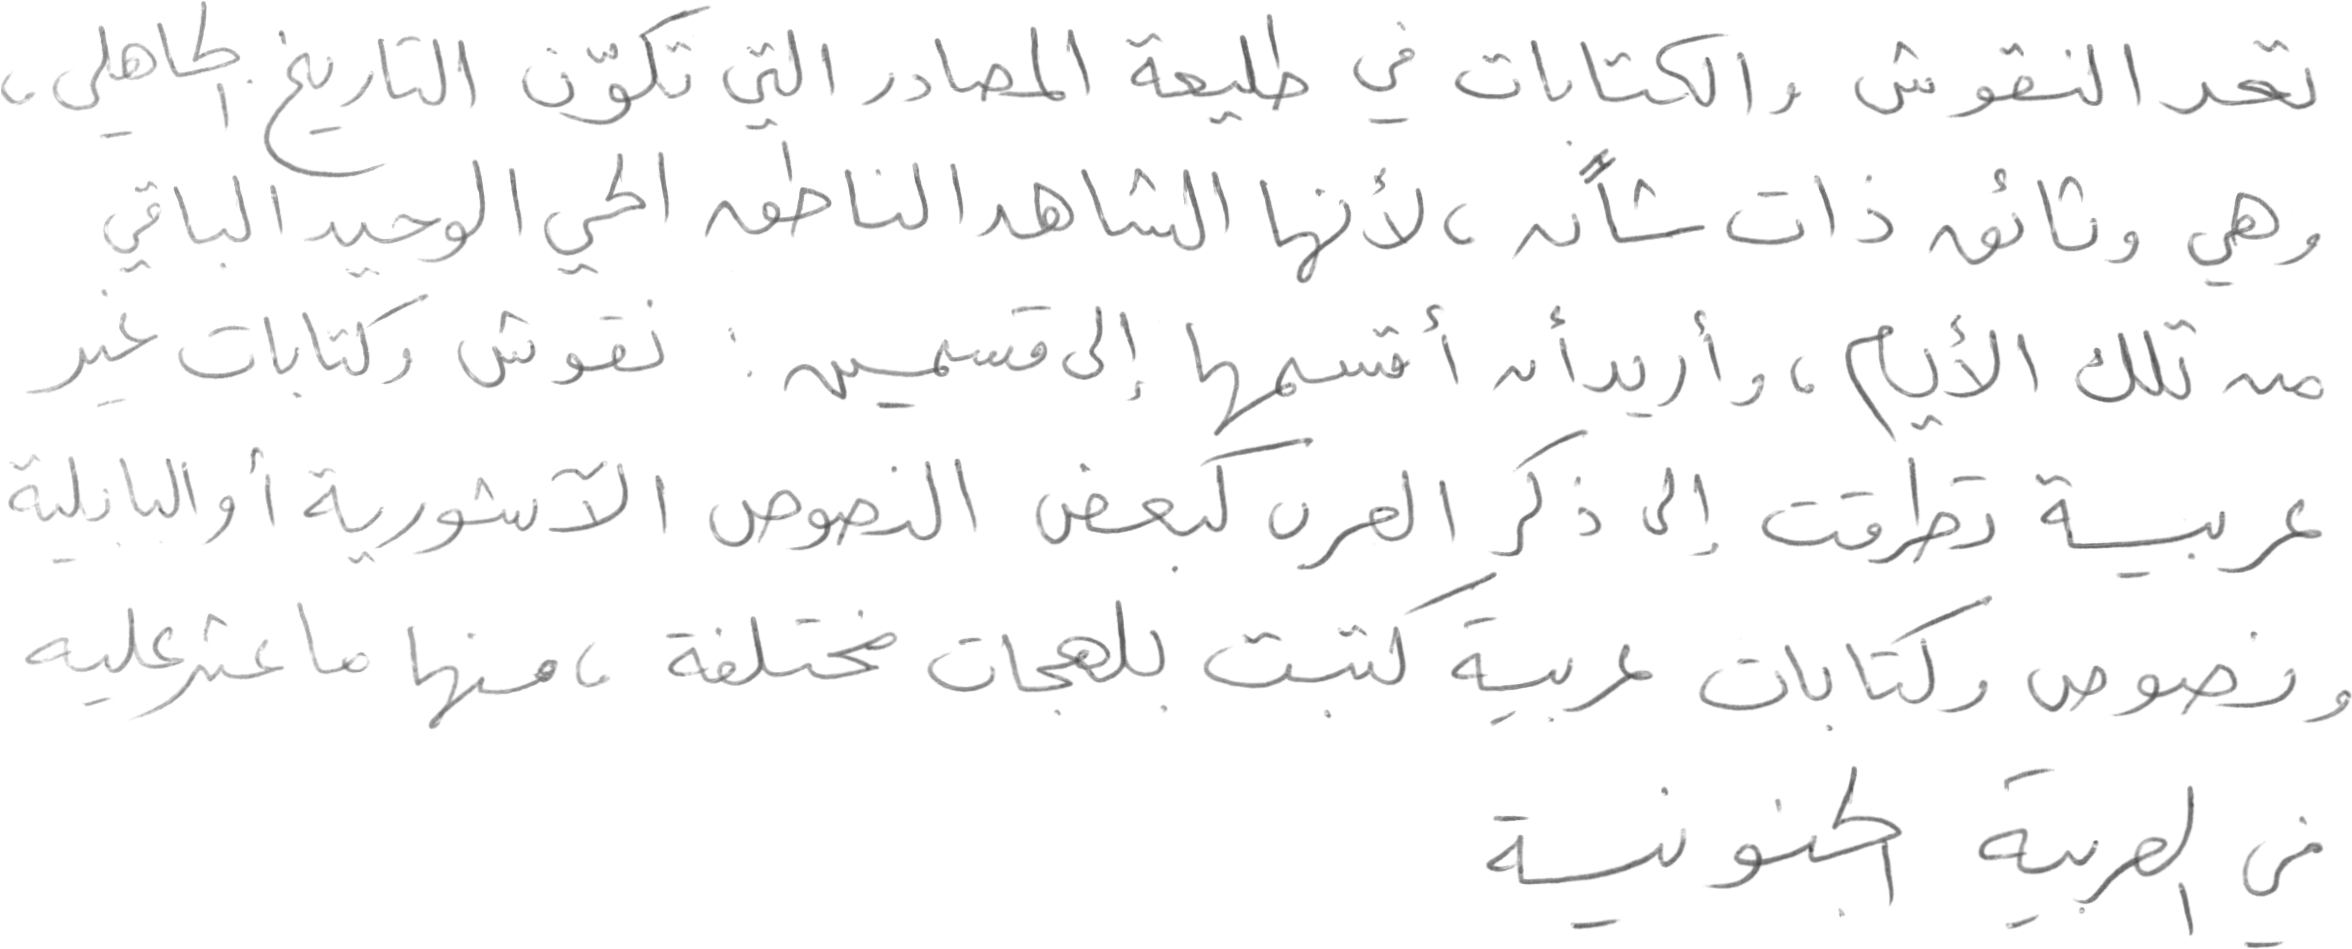 تعد النقوش والكتابات في طليعة المصادر التي تكوّن التاريخ الجاهلي،
وهي وثائق ذات شأنٍ، لأنها الشاهد الناطق الحي الوحيد الباقي
من تلك الأيام، وأريد أن أقسمها إلى قسمين: نقوش وكتابات غير
عربية تطرقت إلى ذكر العرب كبعض النصوص الآشورية أو البابلية
ونصوص وكتابات عربية كتبت بلهجات مختلفة، منها ما عثر عليه
في العربية الجنوبية